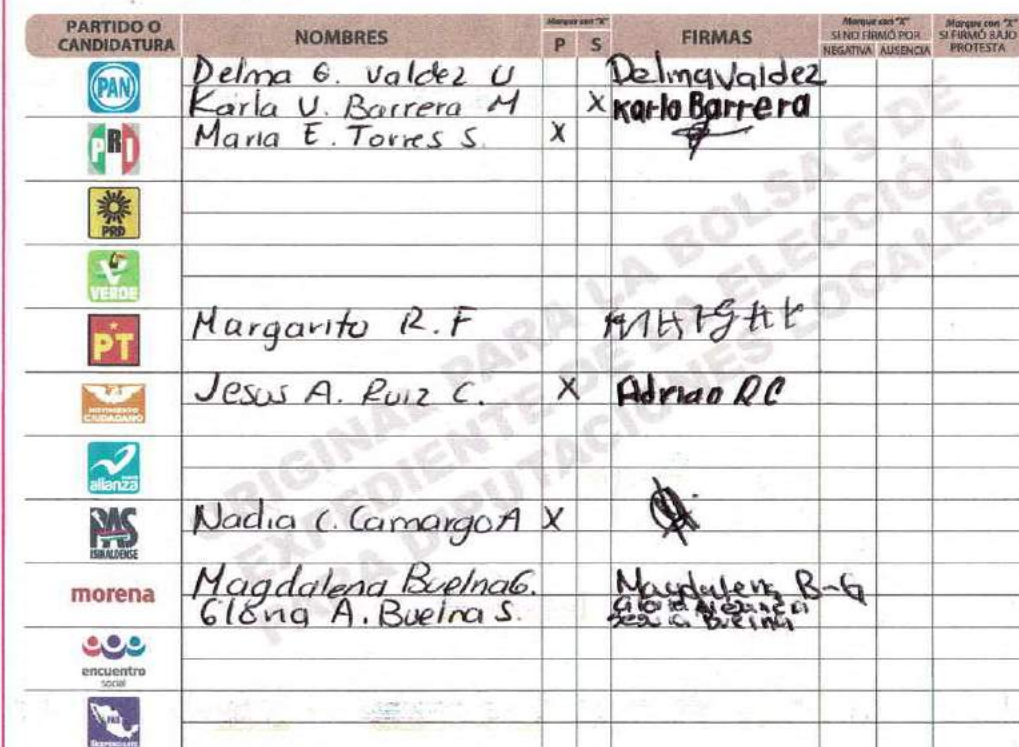 PARTIDO O CANDIDATURA NOMBRES Marque con "X" P S FIRMAS Marque con "X" SI NO FIRMÓ POR NEGATIVA AUSENCIA Marque con "X" SI FIRMÓ BAJO PROTESTA
PAN Delma G. Valdez U Delma Valdez
Karla V. Barrera M X Karla Barrera
PRI Maria E. Torres S. X
PRD
VERDE
PT Margarito R. F
MOVIMIENTO CIUDADANO Jesus A. Ruiz C. X Adrian RC
alianza
PAS SINALOENSE Nadia C. Camargo A X
morena Magdalena Buelna G. Magdalena B-G
Gloria A. Buelna S.
encuentro social
PAIS
INDEPENDIENTE
ORIGINAL PARA LA BOLSA 5 DE
EXPEDIENTE DE LA ELECCIÓN
PARA DIPUTACIONES LOCALES